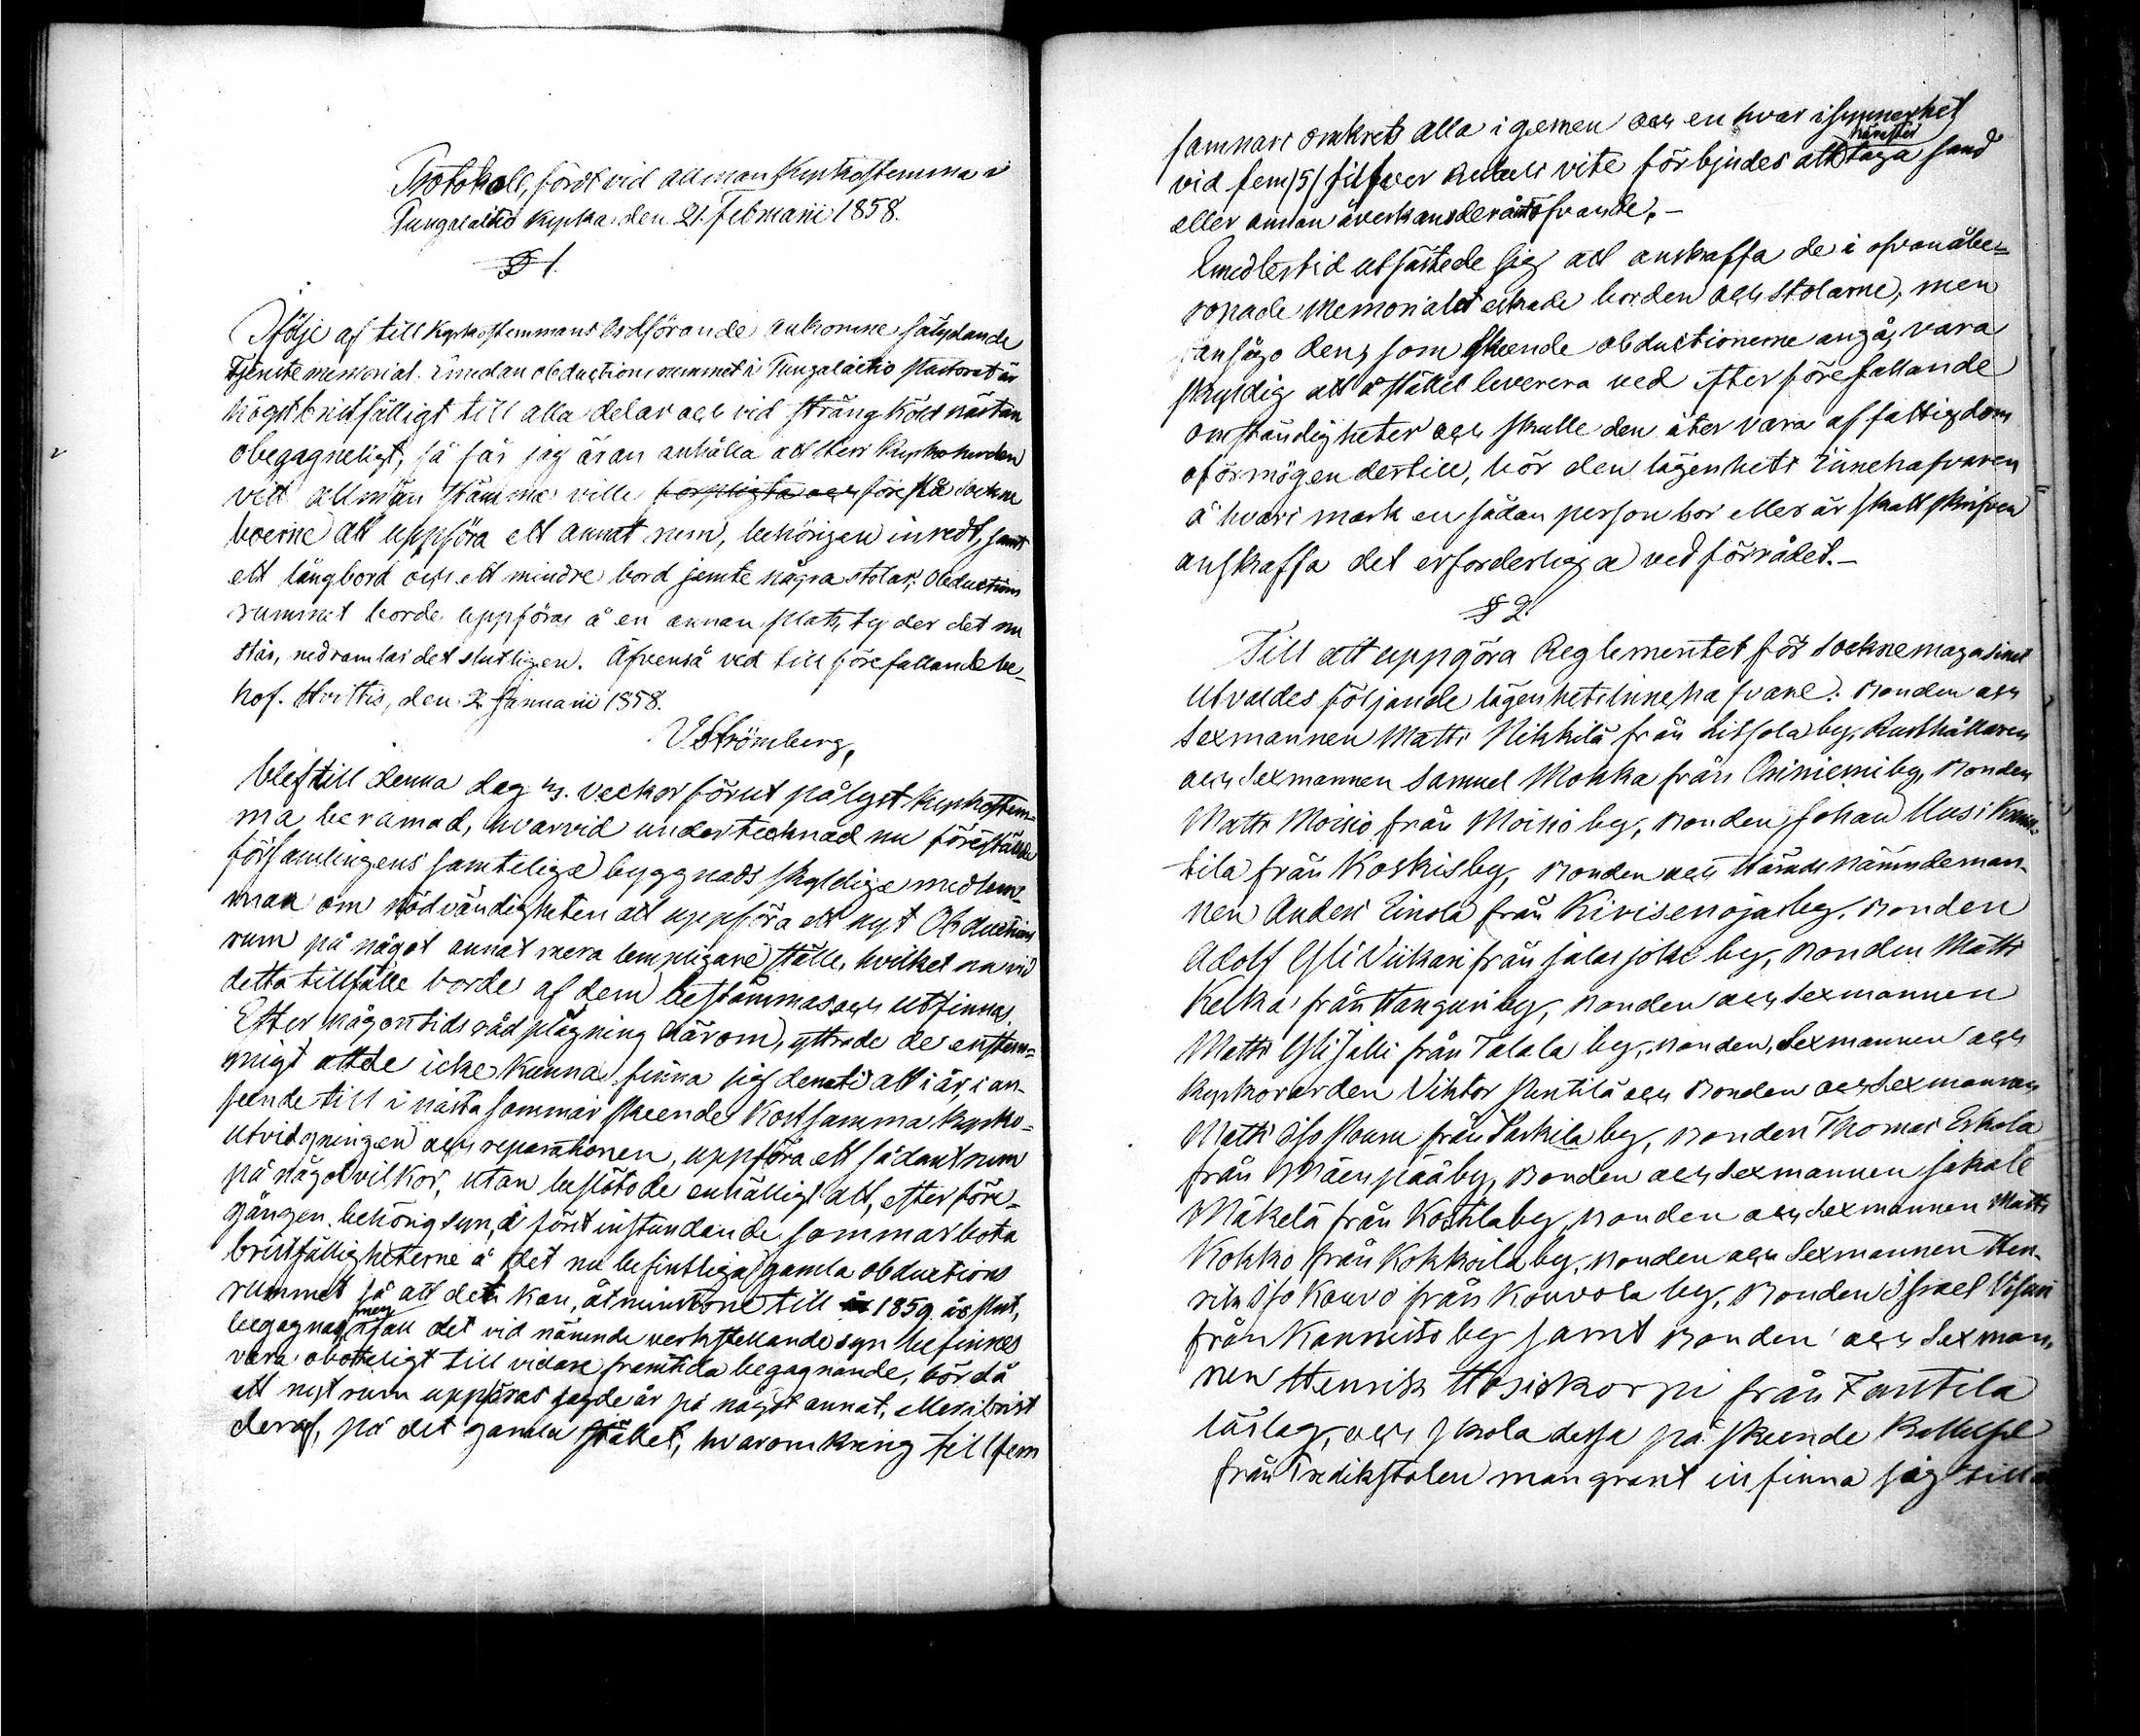 Protokoll, fördt vid allmän Kyrkostemma i
Pungalaitio Kyrka den 21. Februarii 1858.
§ 1.
Ifölje af till Kyrkostemmans Ordförande ankomne sålydande
Tjenstememorial: Emedan obductionsrummet i Pungalaitio Pastorat är
högst bristfälligt till alla delar och vid sträng köld nästan
obegagneligt, så får jag äran anhålla att Herr Kyrkoherden
vid allmän stämma ville förpligta och föreslå sockne
boerne att uppföra ett annat rum, behörigen inredt, samt
ett långbord och ett mindre bord jemte några stolar; Obductions
rummet borde uppföras å en annan plats, ty der det nu
står, nedramlar det slutligen. Äfvenså ved till förefallande be-
hof. Hvittis, den 2 Januarii 1858.
V Strömberg,
blef till denna dag veckor förut pålyst Kyrkostem-
ma beramad, hvarvid undertecknad nu föreställde
församlingens samtelige byggnadsskyldige medlem-
mar om nödvändigheten att uppföra ett nytt Obductions
rum på något annat mera lempligare ställe, hvilket nu vid
detta tillfälle borde af dem bestämmas och utfinnas.
Efter någon tids rådplägning härom, yttrade de enstem-
migt att de icke kunna finna sig deruti att i år, i an-
seende till i nästa sommar skeende kostsamma kyrko-
utvidgningen och reparationen, uppföra ett sådant rum
på något vilkor, utan beslötode enhälligt att, efter före-
gången behörig syn, å först instundande sommar bota
bristfälligheterne å det nu befintliga gamla obductions
rummet så att det kan, åtminstone till år 1859 års slut,
begagnas, men ifall det vid nämnde verkställande syn befinnes
vara obotteligt till vidare framtida begagnande, bör då
ett nytt rum uppföras sagde år på något annat, eller i brist
deraf, på det gamla stället, hvaromkring till fem
famnars omkrets alla i gemen och en hvar i synnerhet
vid fem /5/ Silfver Rubels vite förbjudes att hänefter taga sand
eller annan åverkan derå utöfvande. -
Emedlertid utfästede sig att anskaffa de i ofvanåbe-
ropade Memorialet äskade borden och stolarne, men
ansågo den, som skeende obductionerne angå, vara
skyldig att å stället leverera ved efter förefallande
omständigheter och skulle den åter vara af fattigdom
oförmögen dertill, bör den lägenhets innehafvaren
å hvars mark en sådan person bor eller är skattskrifven
anskaffa det erforderliga vedförrådet. -
§ 2.
Till att uppgöra Reglementet för Socknemagasinet
utvaldes följande lägenhetsinnehafvare: Bonden och
Sexmannen Matts Nikkilä från Sitsola by, Rusthållaren
och Sexmannen Samuel Mokka från Oriniemi by, Bonden
Matts Moisio från Moisio by, Bonden Johan Uusi Kunn-
tila från Koskis by, Bonden och Härads nämndeman-
nen Anders Einola från Kivisenoja by, Bonden
Adolf Yli Viikari från Jalasjoki by, Bonden Matts
Kelka från Hanguri by, Bonden och Sexmannen
Matts Yli Jalli från Talala by, Bonden, Sexmannen och
Kyrkovärden Viktor Pentilä och Bonden och Sexmannen
Matts Iso från Parkila by, Bonden Thomas Eskola
från Mäenpää by, Bonden och Sexmannen Jakob
Mäkelä från Kostila by, Bonden och Sexmannen Matts
Kokko från Kokkoila by, Bonden och Sexmannen Hen-
rik Iso Kouvo från Kouvola by, Bonden Israel
från Kannisto by samt Bonden och Sexman-
nen Henrik Hosiokorpi från Fantila
läslag, och skola dessa på skeende Kallelse
från Predikstolen mangrant infinna sig till